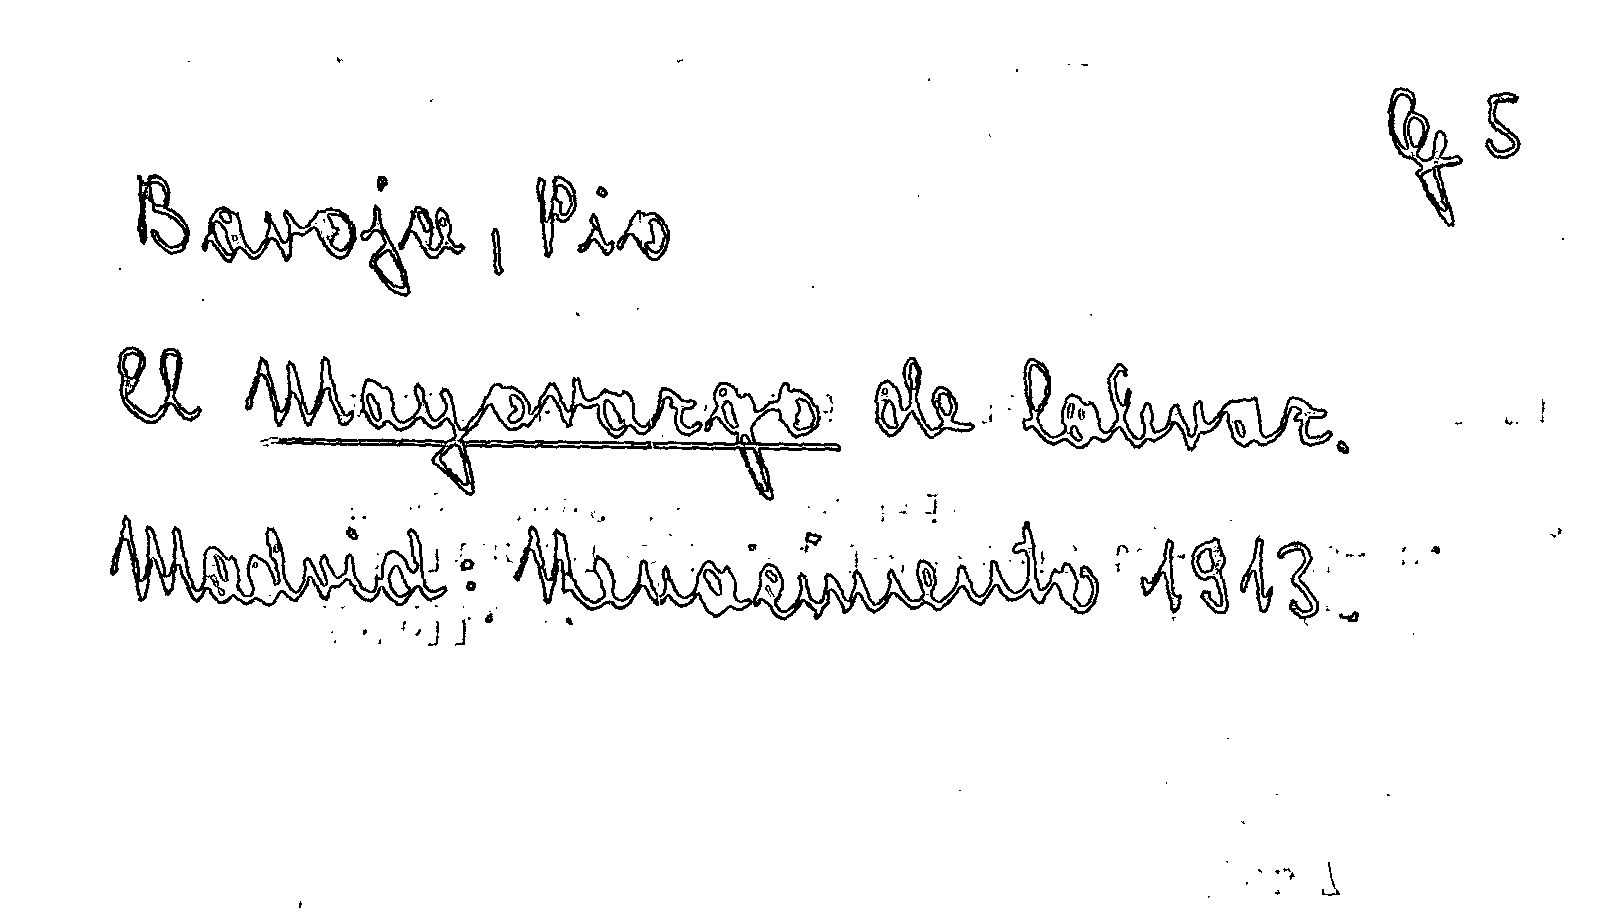 Cf 5
Baroja, Pio
El Mayorazgo de Labraz.
Madrid: Renacimiento 1913.